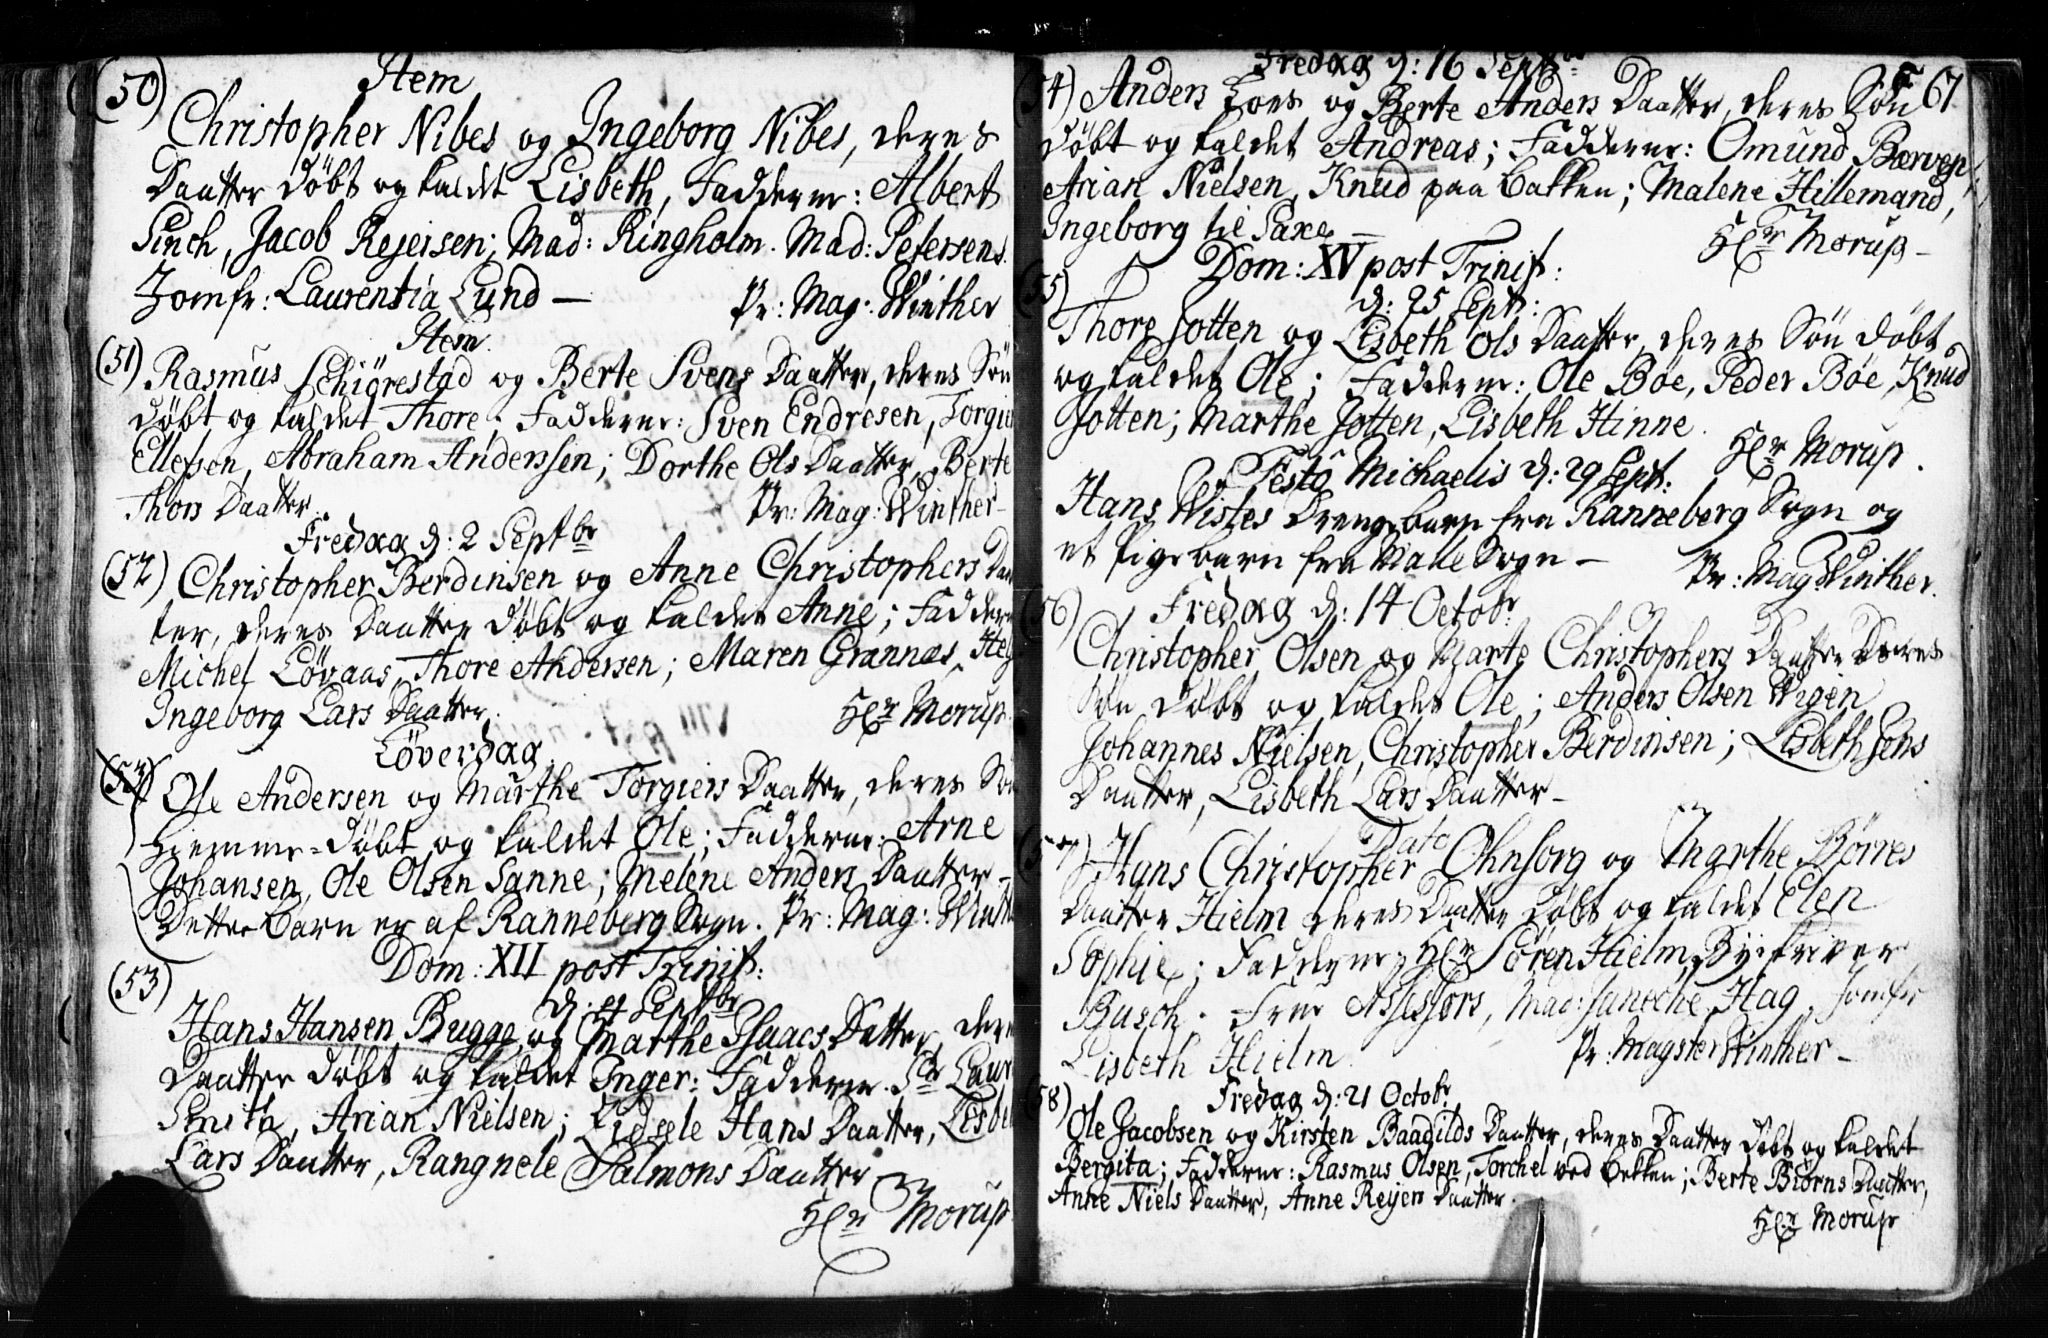 (50) Item
Christopher Nibes og Ingeborg Nibes, deres
Daatter døbt og kaldet Lisbeth, Fadderne: Albert
Sinch, Jacob Rejersen; Mad: Ringholm. Mad: Petersens.
Jomfr: Laurentia Lund — Pr: Mag: Winther
Item
(51) Rasmus Schiørestad og Berte Svens Daatter, deres Søn
døbt og kaldet Thore; Fadderne: Sven Endresen, Torgier
Ellefsen, Abraham Anderssen; Dorthe Ols Daatter, Berte
Thors Daatter. Pr: Mag: Winther
Fredag d: 2 Septbr
(52) Christopher Berdinsen og Anne Christophers Daat
ter, deres Daatter døbt og kaldet Anne; Faddern
Michel Løvaas, Thore Andersen; Maren Grannæs,
Ingeborg Lars Daatter. Hr Morup.
Løverdag
(53) Ole Andersen og Marthe Torgiers Daatter, deres Søn
hiemme-døbt og kaldet Ole; Fadderne: Arne
Johansen, Ole Olsen Sanne; Melene Anders Daatter —
Dette barn er af Ranneberg Sogn. Pr: Mag: Winth
Dom: XII post Trinit:
d: 4 Septbr
(53) Hans Hansen Bugge og Marthe Isaacs Datter, dere
Daatter døbt og kaldet Inger: Fadderne. Sr Laur
Smith, Arian Nielsen; Hans Daatter, Lisbe
Lars Daatter, Rangnele Salmons Daatter
Hr Morup
Fredag d: 16 Septbr
67
54) Anders Foss og Berte Anders Daatter, deres Søn
døbt og kaldet Andreas; Fadderne: Omund
Arian Nielsen, Knud paa bakken; Malene Hillemand,
Ingeborg til Saxe — Hr Morup —
Dom: XV post Trinit:
55) d: 25 Sept:
Thore Jotten og Lisbeth Ols Daatter, deres Søn døbt
og kaldet Ole; Fadderne: Ole Bøe, Peder Bøe, Knud
Jotten; Marthe Jotten, Lisbeth Hinne. Hr Morup.
Festo Michaelis d: 29 Sept:
Hans Wistes Drengebarn fra Ranneberg Sogn og
et Pigebarn fra Malle Sogn — Pr: Mag: Winther.
56) Fredag d: 14 Octobr:
Christopher Olsen og Marte Christophers Daatter Deres
Søn døbt og kaldet Ole; Anders Olsen Wigen
Johannes Nielsen, Christopher Berdinsen; Lisbeth Jens
Daatter, Lisbeth Lars Daatter —
Dato
57) Hans Christopher Ohnsorg og Marthe Børres
Daatter Hielm deres Daatter døbt og kaldet Elen
Sophie; Fadderne, Hr Søren Hielm, Byskriver
Busch. Frue Assessors, Mad: Janeche Hag, Jomfr
Lisbeth Hielm. Pr: Magster Winther —
58) Fredag d: 21 Octobr
Ole Jacobsen og Kirsten Baadilds Daatter, deres Daatter døbt og kaldet
Bergita; Fadderne: Rasmus Olsen, Torchel ved bekken; Berte Biørns Daatter,
Anne Niels Daatter, Anne Reijers Daatter. Hr Morup